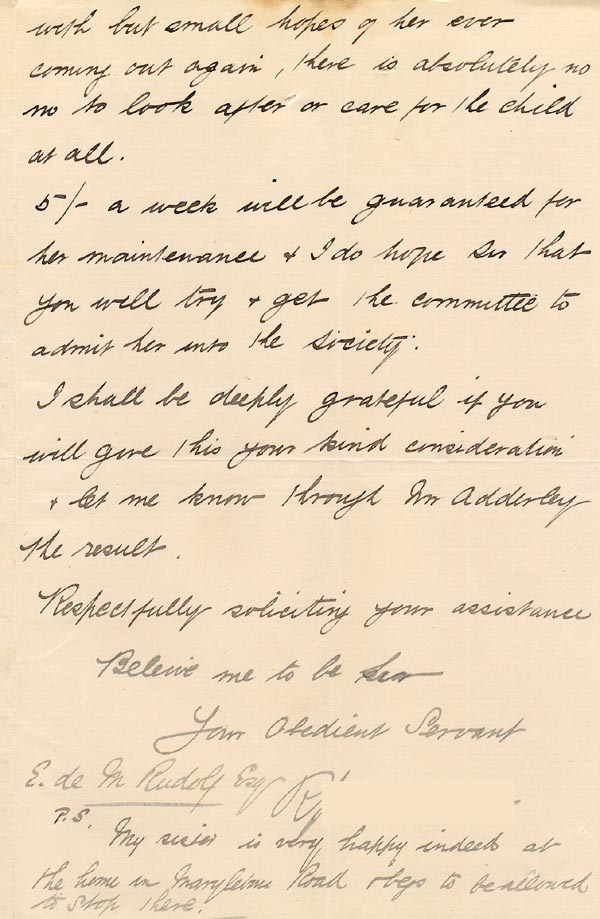 with but small hopes of her ever
coming out again, there is absolutely no
no to look after or care for the child
at all.
5/- a week will be guaranteed for
her maintenance & I do hope Sir that
you will try & get the committee to
admit her into the Society.
I shall be deeply grateful if you
will give this your kind consideration
& let me know through Mr Adderley
the result.
Respectfully soliciting your assistance
Beleive me to be
Your Obedient Servant
E. de M Rudolf Esq
P.S.
My sister is very happy indeed at
the home in Marylebone Road & begs to be allowed
to stop there.